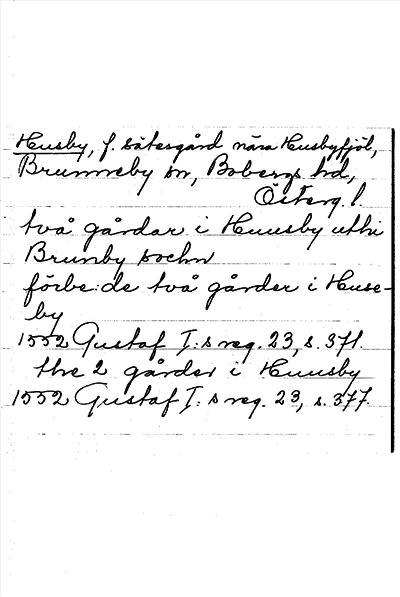 Husby, f. sätesgård nära Husbyfjöl,
Brunneby sn, Bobergs hd,
Österg. l.
två gårdar i Huusby uthi
Brunby sochn
förbe:de två gårder i Huse-
by
1552 Gustaf I:s reg. 23, s. 371.
thre 2 gårder i Huusby
1552 Gustaf I:s reg. 23, s. 377.